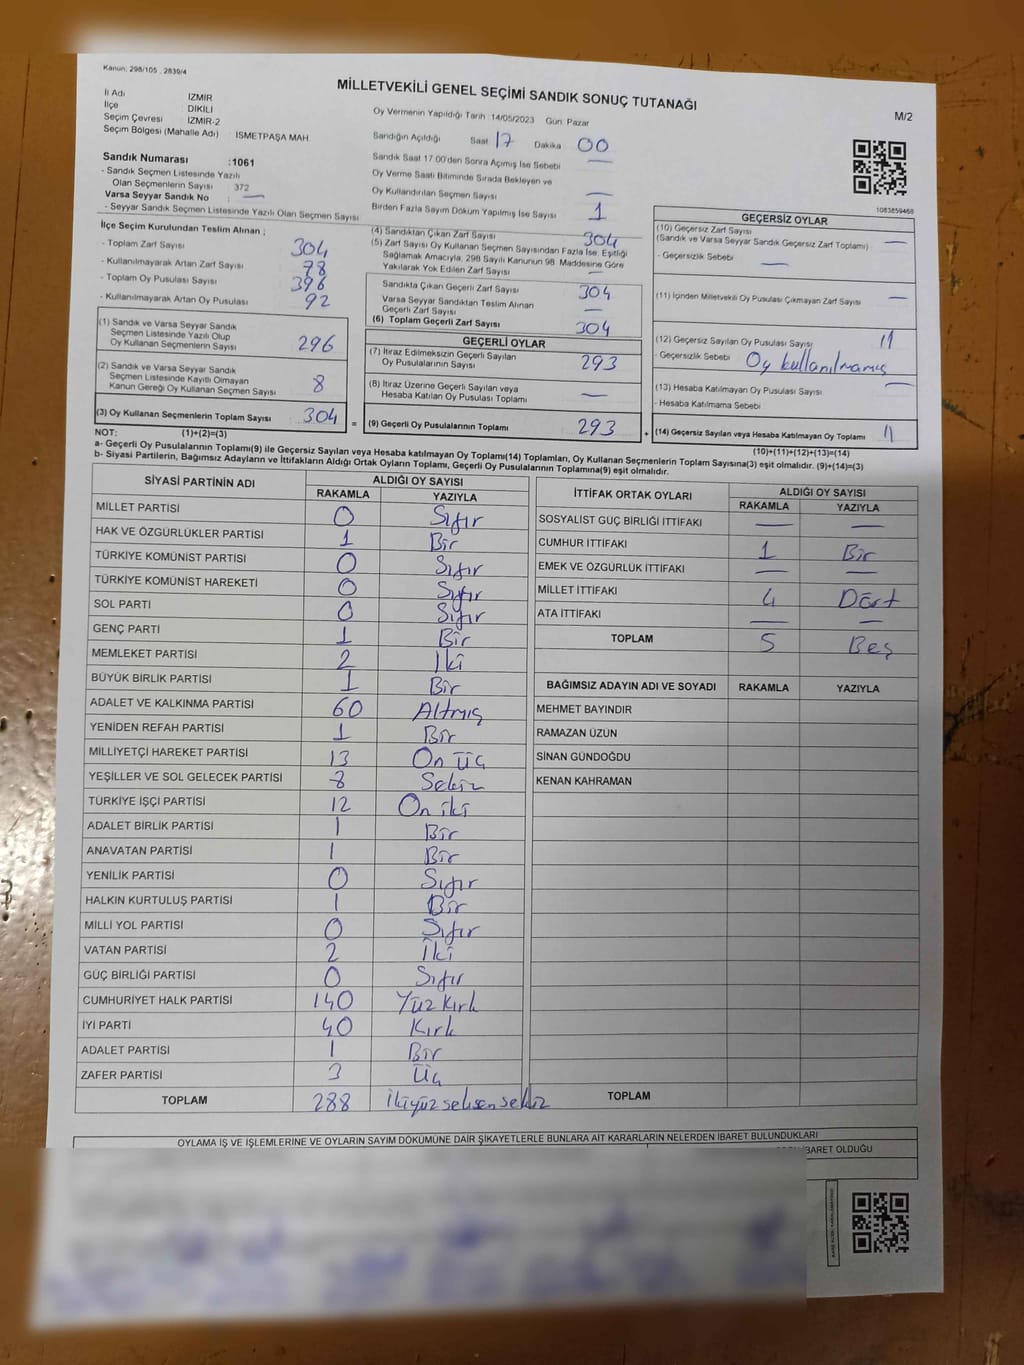 Kanun: 298/105 , 2839/4
MİLLETVEKİLİ GENEL SEÇİMİ SANDIK SONUÇ TUTANAĞI
M/2
İl Adı İZMİR
İlçe DİKİLİ
Seçim Çevresi İZMİR-2
Seçim Bölgesi (Mahalle Adı) : İSMETPAŞA MAH.
Sandık Numarası :1061
- Sandık Seçmen Listesinde Yazılı
Olan Seçmenlerin Sayısı 372
Varsa Seyyar Sandık No : —
- Seyyar Sandık Seçmen Listesinde Yazılı Olan Seçmen Sayısı
Oy Vermenin Yapıldığı Tarih :14/05/2023 Gün: Pazar
Sandığın Açıldığı Saat 17 Dakika 00
Sandık Saat 17.00'den Sonra Açılmış İse Sebebi —
Oy Verme Saati Bitiminde Sırada Bekleyen ve
Oy Kullandırılan Seçmen Sayısı —
Birden Fazla Sayım Döküm Yapılmış İse Sayısı 1
1083859468
İlçe Seçim Kurulundan Teslim Alınan ;
- Toplam Zarf Sayısı 304
- Kullanılmayarak Artan Zarf Sayısı 78
- Toplam Oy Pusulası Sayısı 396
- Kullanılmayarak Artan Oy Pusulası 92
(1) Sandık ve Varsa Seyyar Sandık
Seçmen Listesinde Yazılı Olup
Oy Kullanan Seçmenlerin Sayısı 296
(2) Sandık ve Varsa Seyyar Sandık
Seçmen Listesinde Kayıtlı Olmayan
Kanun Gereği Oy Kullanan Seçmen Sayısı 8
(3) Oy Kullanan Seçmenlerin Toplam Sayısı 304 =
(4) Sandıktan Çıkan Zarf Sayısı 304
(5) Zarf Sayısı Oy Kullanan Seçmen Sayısından Fazla İse, Eşitliği
Sağlamak Amacıyla, 298 Sayılı Kanunun 98. Maddesine Göre
Yakılarak Yok Edilen Zarf Sayısı —
Sandıkta Çıkan Geçerli Zarf Sayısı 304
Varsa Seyyar Sandıktan Teslim Alınan
Geçerli Zarf Sayısı —
(6) Toplam Geçerli Zarf Sayısı 304
GEÇERLİ OYLAR
(7) İtiraz Edilmeksizin Geçerli Sayılan
Oy Pusulalarının Sayısı 293
(8) İtiraz Üzerine Geçerli Sayılan veya
Hesaba Katılan Oy Pusulası Toplamı —
(9) Geçerli Oy Pusulalarının Toplamı 293 +
GEÇERSİZ OYLAR
(10) Geçersiz Zarf Sayısı
(Sandık ve Varsa Seyyar Sandık Geçersiz Zarf Toplamı) —
- Geçersizlik Sebebi —
(11) İçinden Milletvekili Oy Pusulası Çıkmayan Zarf Sayısı —
(12) Geçersiz Sayılan Oy Pusulası Sayısı 11
- Geçersizlik Sebebi Oy kullanılmamış
(13) Hesaba Katılmayan Oy Pusulası Sayısı —
- Hesaba Katılmama Sebebi
(14) Geçersiz Sayılan veya Hesaba Katılmayan Oy Toplamı 11
NOT: (1)+(2)=(3) (10)+(11)+(12)+(13)=(14)
a- Geçerli Oy Pusulalarının Toplamı(9) ile Geçersiz Sayılan veya Hesaba katılmayan Oy Toplamı(14) Toplamları, Oy Kullanan Seçmenlerin Toplam Sayısına(3) eşit olmalıdır. (9)+(14)=(3)
b- Siyasi Partilerin, Bağımsız Adayların ve İttifakların Aldığı Ortak Oyların Toplamı, Geçerli Oy Pusulalarının Toplamına(9) eşit olmalıdır.
SİYASİ PARTİNİN ADI ALDIĞI OY SAYISI
RAKAMLA YAZIYLA
MİLLET PARTİSİ 0 Sıfır
HAK VE ÖZGÜRLÜKLER PARTİSİ 1 Bir
TÜRKİYE KOMÜNİST PARTİSİ 0 Sıfır
TÜRKİYE KOMÜNİST HAREKETİ 0 Sıfır
SOL PARTİ 0 Sıfır
GENÇ PARTİ 1 Bir
MEMLEKET PARTİSİ 2 İki
BÜYÜK BİRLİK PARTİSİ 1 Bir
ADALET VE KALKINMA PARTİSİ 60 Altmış
YENİDEN REFAH PARTİSİ 1 Bir
MİLLİYETÇİ HAREKET PARTİSİ 13 On üç
YEŞİLLER VE SOL GELECEK PARTİSİ 8 Sekiz
TÜRKİYE İŞÇİ PARTİSİ 12 On iki
ADALET BİRLİK PARTİSİ 1 Bir
ANAVATAN PARTİSİ 1 Bir
YENİLİK PARTİSİ 0 Sıfır
HALKIN KURTULUŞ PARTİSİ 1 Bir
MİLLİ YOL PARTİSİ 0 Sıfır
VATAN PARTİSİ 2 İki
GÜÇ BİRLİĞİ PARTİSİ 0 Sıfır
CUMHURİYET HALK PARTİSİ 140 Yüz Kırk
İYİ PARTİ 40 Kırk
ADALET PARTİSİ 1 Bir
ZAFER PARTİSİ 3 Üç
TOPLAM 288 İkiyüz seksen sekiz
İTTİFAK ORTAK OYLARI ALDIĞI OY SAYISI
RAKAMLA YAZIYLA
SOSYALİST GÜÇ BİRLİĞİ İTTİFAKI — —
CUMHUR İTTİFAKI 1 Bir
EMEK VE ÖZGÜRLÜK İTTİFAKI — —
MİLLET İTTİFAKI 4 Dört
ATA İTTİFAKI — —
TOPLAM 5 Beş
BAĞIMSIZ ADAYIN ADI VE SOYADI RAKAMLA YAZIYLA
MEHMET BAYINDIR
RAMAZAN ÜZÜN
SİNAN GÜNDOĞDU
KENAN KAHRAMAN
TOPLAM
OYLAMA İŞ VE İŞLEMLERİNE VE OYLARIN SAYIM DÖKÜMÜNE DAİR ŞİKAYETLERLE BUNLARA AİT KARARLARIN NELERDEN İBARET BULUNDUKLARI
İBARET OLDUĞU